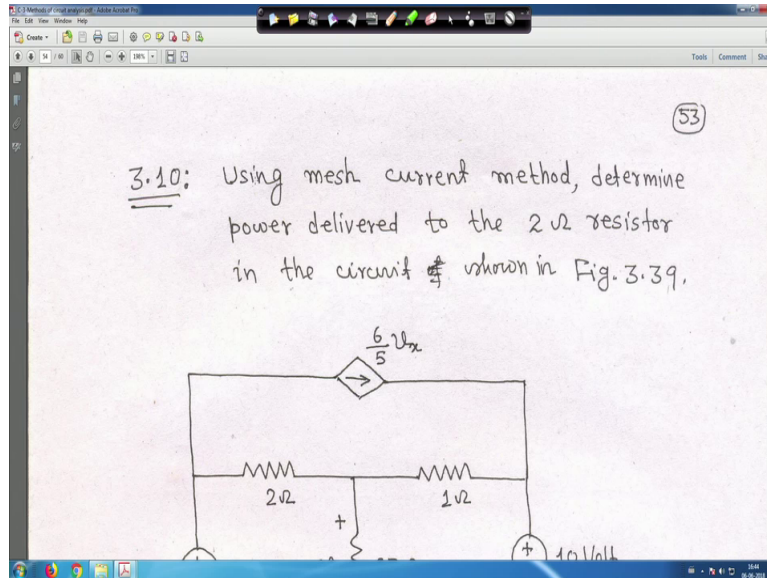 C-3-Methods of circuit analysis.pdf - Adobe Acrobat Pro
File Edit View Window Help
Create
54 / 60 198%
Tools Comment
53
3.10: Using mesh current method, determine
power delivered to the 2 Ω resistor
in the circuit shown in Fig. 3.39.
6/5 Vx
2Ω 1Ω
+
+ + 10 Volt
16:44
06-06-2018